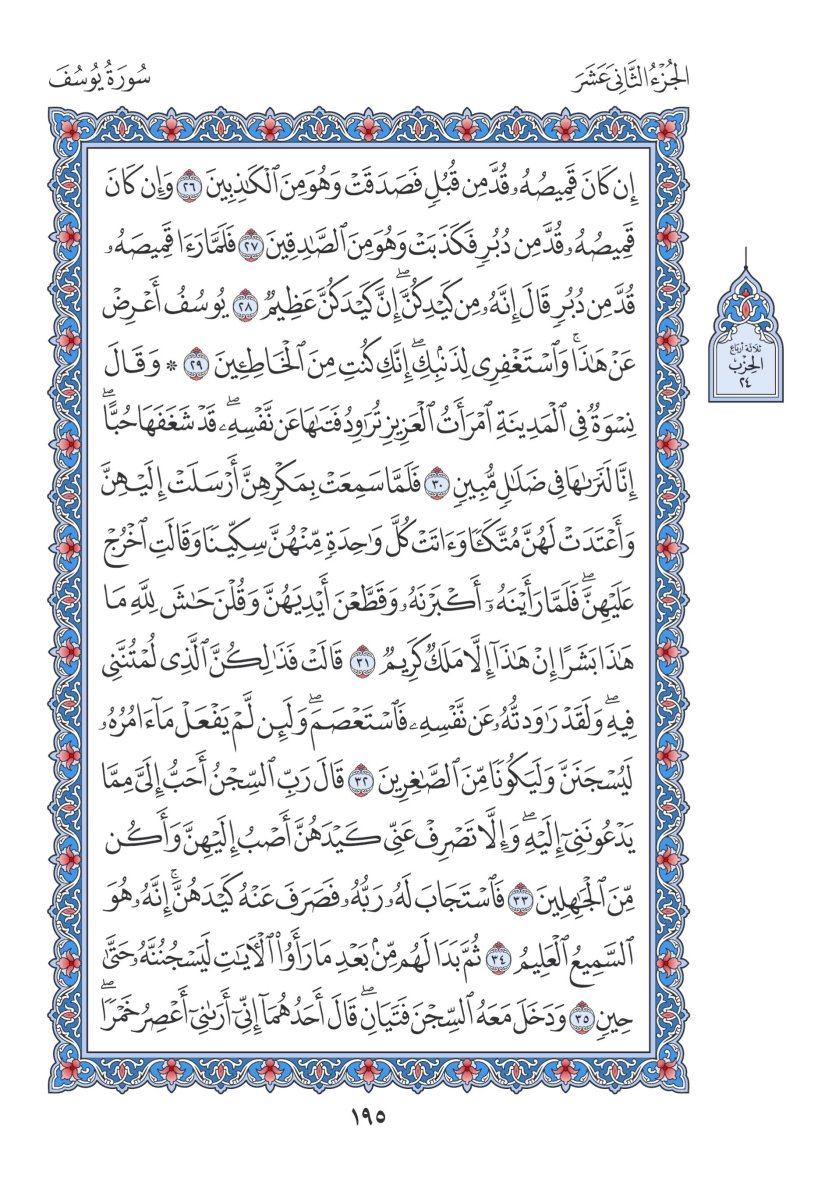 الجُزْءُ الثَّانِىَ عَشَرَ
سُورَةُ يُوسُفَ
إِن كَانَ قَمِيصُهُۥ قُدَّ مِن قُبُلٍ فَصَدَقَتْ وَهُوَ مِنَ ٱلْكَٰذِبِينَ ٢٦ وَإِن كَانَ
قَمِيصُهُۥ قُدَّ مِن دُبُرٍ فَكَذَبَتْ وَهُوَ مِنَ ٱلصَّٰدِقِينَ ٢٧ فَلَمَّا رَءَا قَمِيصَهُۥ
قُدَّ مِن دُبُرٍ قَالَ إِنَّهُۥ مِن كَيْدِكُنَّ ۖ إِنَّ كَيْدَكُنَّ عَظِيمٌ ٢٨ يُوسُفُ أَعْرِضْ
عَنْ هَٰذَا ۚ وَٱسْتَغْفِرِى لِذَنۢبِكِ ۖ إِنَّكِ كُنتِ مِنَ ٱلْخَاطِـِٔينَ ٢٩ * وَقَالَ
نِسْوَةٌ فِى ٱلْمَدِينَةِ ٱمْرَأَتُ ٱلْعَزِيزِ تُرَٰوِدُ فَتَىٰهَا عَن نَّفْسِهِۦ ۖ قَدْ شَغَفَهَا حُبًّا ۖ
إِنَّا لَنَرَىٰهَا فِى ضَلَٰلٍ مُّبِينٍ ٣٠ فَلَمَّا سَمِعَتْ بِمَكْرِهِنَّ أَرْسَلَتْ إِلَيْهِنَّ
وَأَعْتَدَتْ لَهُنَّ مُتَّكَـًٔا وَءَاتَتْ كُلَّ وَٰحِدَةٍ مِّنْهُنَّ سِكِّينًا وَقَالَتِ ٱخْرُجْ
عَلَيْهِنَّ ۖ فَلَمَّا رَأَيْنَهُۥٓ أَكْبَرْنَهُۥ وَقَطَّعْنَ أَيْدِيَهُنَّ وَقُلْنَ حَٰشَ لِلَّهِ مَا
هَٰذَا بَشَرًا إِنْ هَٰذَآ إِلَّا مَلَكٌ كَرِيمٌ ٣١ قَالَتْ فَذَٰلِكُنَّ ٱلَّذِى لُمْتُنَّنِى
فِيهِ ۖ وَلَقَدْ رَٰوَدتُّهُۥ عَن نَّفْسِهِۦ فَٱسْتَعْصَمَ ۖ وَلَئِن لَّمْ يَفْعَلْ مَآ ءَامُرُهُۥ
لَيُسْجَنَنَّ وَلَيَكُونًا مِّنَ ٱلصَّٰغِرِينَ ٣٢ قَالَ رَبِّ ٱلسِّجْنُ أَحَبُّ إِلَىَّ مِمَّا
يَدْعُونَنِىٓ إِلَيْهِ ۖ وَإِلَّا تَصْرِفْ عَنِّى كَيْدَهُنَّ أَصْبُ إِلَيْهِنَّ وَأَكُن
مِّنَ ٱلْجَٰهِلِينَ ٣٣ فَٱسْتَجَابَ لَهُۥ رَبُّهُۥ فَصَرَفَ عَنْهُ كَيْدَهُنَّ ۚ إِنَّهُۥ هُوَ
ٱلسَّمِيعُ ٱلْعَلِيمُ ٣٤ ثُمَّ بَدَا لَهُم مِّنۢ بَعْدِ مَا رَأَوُا۟ ٱلْءَايَٰتِ لَيَسْجُنُنَّهُۥ حَتَّىٰ
حِينٍ ٣٥ وَدَخَلَ مَعَهُ ٱلسِّجْنَ فَتَيَانِ ۖ قَالَ أَحَدُهُمَآ إِنِّىٓ أَرَىٰنِىٓ أَعْصِرُ خَمْرًا ۖ
ثلاثة أرباع
الحِزْب
٢٤
١٩٥